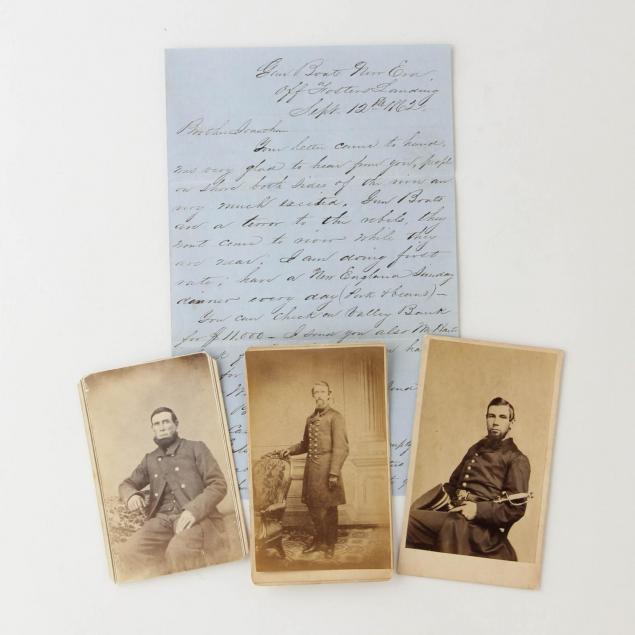 Gun Boat New Era
Off Fosters Landing
Sept. 12th 1862.
Brother
Your letter came to hand,
was very glad to hear from you, people
on shore both sides of the river are
very much excited. Gun Boats
are a terror to the rebels, they
wont come to river while they
are near; I am doing first
rate; have a New England Sunday
dinner every day (Pork & beans) –
You can check on Valley Bank
for $11,000 – I send you also Mr
for